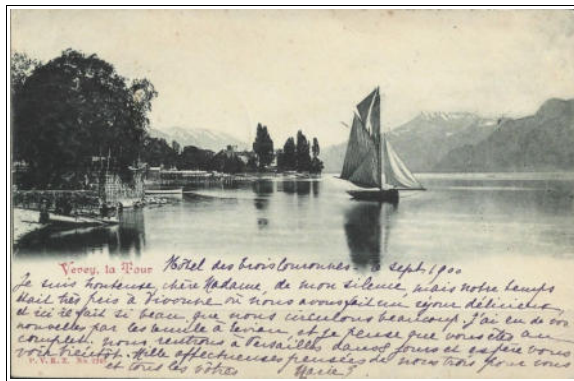 Vevey, la Tour
Hôtel des trois Couronnes. 6 sept 1900
Je suis honteuse, chère Madame, de mon silence, mais notre temps
était très pris à Vivonne où nous avons fait un séjour délicieux,
et ici il fait si beau que nous circulons beaucoup. J'ai eu de vos
nouvelles par les et je pense que vous êtes au
complet. nous rentrons à Versailles dans jours et espère vous
voir bientôt. Mille affectueuses pensées de nous trois pour vous
et tous les vôtres Marie
P. V. K. Z. No.